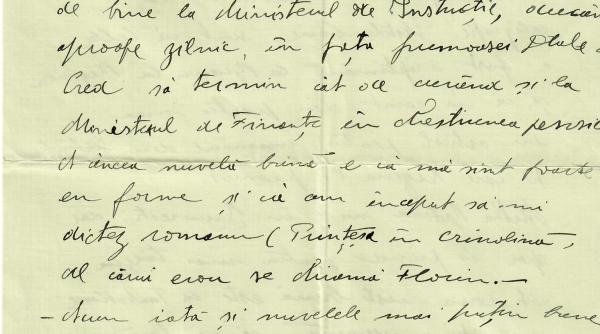 de bine la Ministerul de Instrucție,
aproape zilnic, în fața frumoasei Dtale
Cred să termin cât de curând și la
Ministerul de Finanțe, în chestiunea
A cincea nuvelă bună e că mă simt foarte
en forme și că am început să-mi
dictez romanu (Prințesa în crinolină,
al cărui erou se chiamă Florin.—
— Acum iată și nuvelele mai puțin bune